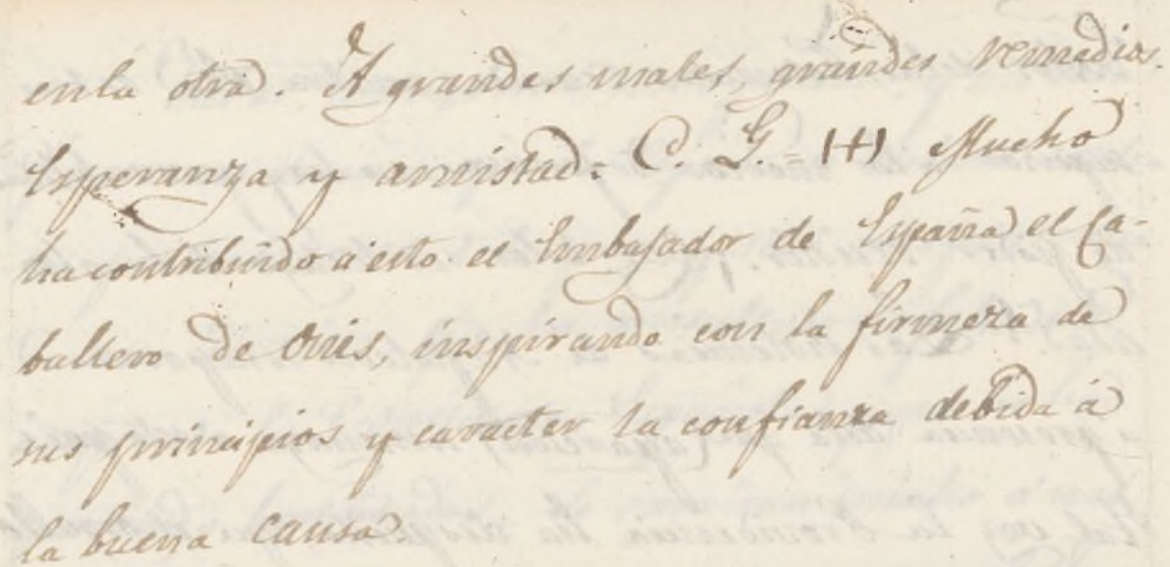 en la otra. A grandes males, grandes remedios.
Esperanza y amistad = C. G. = (H) Mucho
ha contribuido a esto el Embajador de España el Ca-
ballero de Onis, inspirando con la firmeza de
sus principios y caracter la confianza debida á
la buena causa